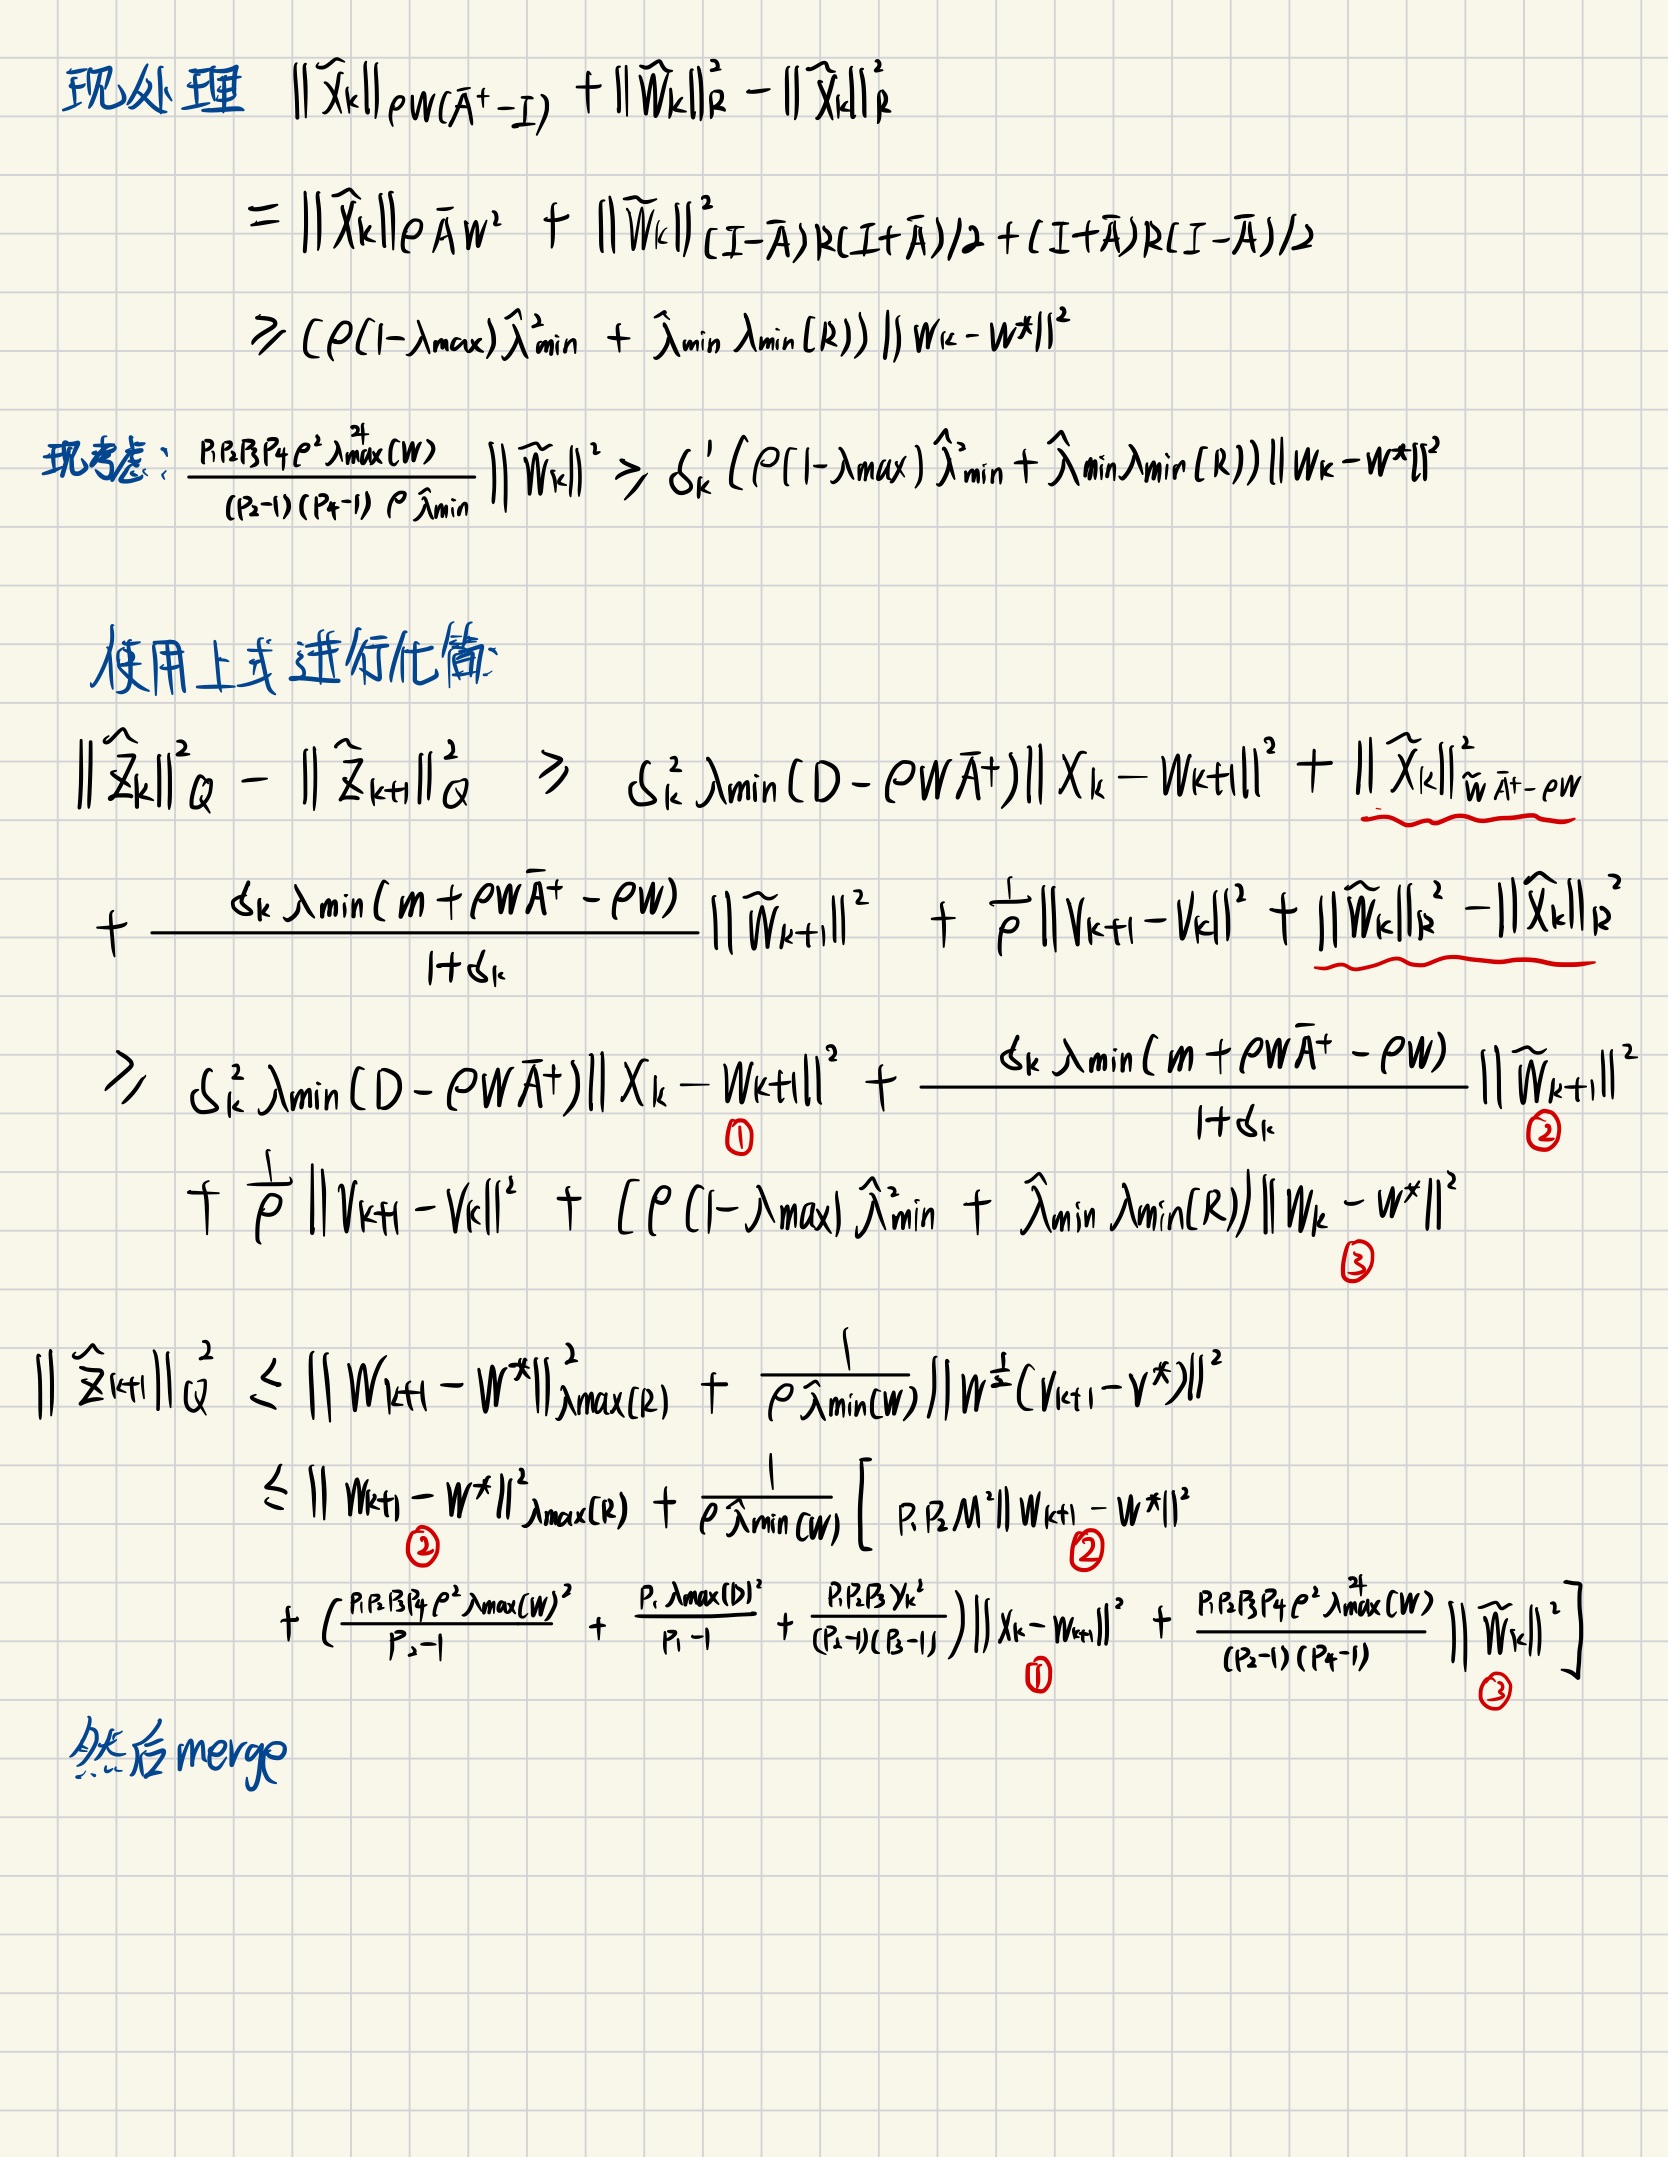 现处理 ||X̂k||ρW(Ā⁺-I) + ||W̃k||²R - ||X̂k||²R
= ||X̂k||ρĀW² + ||W̃k||²(I-Ā)R(I+Ā)/2+(I+Ā)R(I-Ā)/2
≥ (ρ(1-λmax)λ̂²min + λ̂min λmin(R))||Wk-W*||²
现考虑: P₁P₂P₃P₄ρ²λ⁴max(W) / (P₂-1)(P₄-1)ρλ̂min ||W̃k||² ≥ δk'(ρ(1-λmax)λ̂²min + λ̂minλmin(R))||Wk-W*||²
使用上式进行化简:
||Ẑk||²Q - ||Ẑk+1||²Q ≥ δk²λmin(D-ρWĀ⁺)||Xk-Wk+1||² + ||X̂k||²W̃Ā⁺-ρW
+ δkλmin(m+ρWĀ⁺-ρW) / 1+δk ||W̃k+1||² + 1/ρ ||Vk+1-Vk||² + ||W̃k||²R - ||X̂k||R²
≥ δk²λmin(D-ρWĀ⁺)||Xk-Wk+1||² + δkλmin(m+ρWĀ⁺-ρW) / 1+δk ||W̃k+1||²
① ②
+ 1/ρ ||Vk+1-Vk||² + [ρ(1-λmax)λ̂²min + λ̂minλmin(R))||Wk-W*||²
③
||Ẑk+1||²Q ≤ ||Wk+1-W*||²λmax(R) + 1/ρλ̂min(W) ||W^½(Vk+1-V*)||²
≤ ||Wk+1-W*||²λmax(R) + 1/ρλ̂min(W) [ P₁P₂M²||Wk+1-W*||²
② ②
+ (P₁P₂P₃P₄ρ²λmax(W)² / P₂-1 + P₁λmax(D)² / P₁-1 + P₁P₂P₃γk² / (P₂-1)(P₃-1))||Xk-Wk+1||² + P₁P₂P₃P₄ρ²λ⁴max(W) / (P₂-1)(P₄-1) ||W̃k||² ]
① ③
然后merge